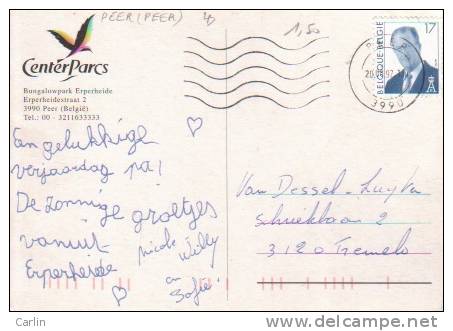 PEER (PEER)
1,50
CenterParcs
Bungalowpark Erperheide
Erperheidestraat 2
3990 Peer (België)
Tel.: 00 - 3211633333
Een gelukkige
verjaardag pa!
De zonnige groetjes
vanuit
Erperheide
Nicole Willy
en
Sofie
BELGIQUE-BELGIE
17
3990
Van Dessel-Luyten
Schrieklaan 2
3120 Tremelo
Carlin
delcampe.net